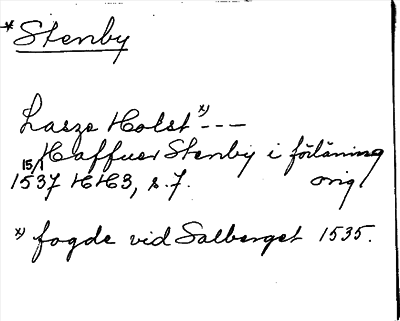 * Stenby
Lasze Holst x) ---
Haffuer Stenby i förläning
15/1 1537 HH3, s. 7. orig
x) fogde vid Salberget 1535.